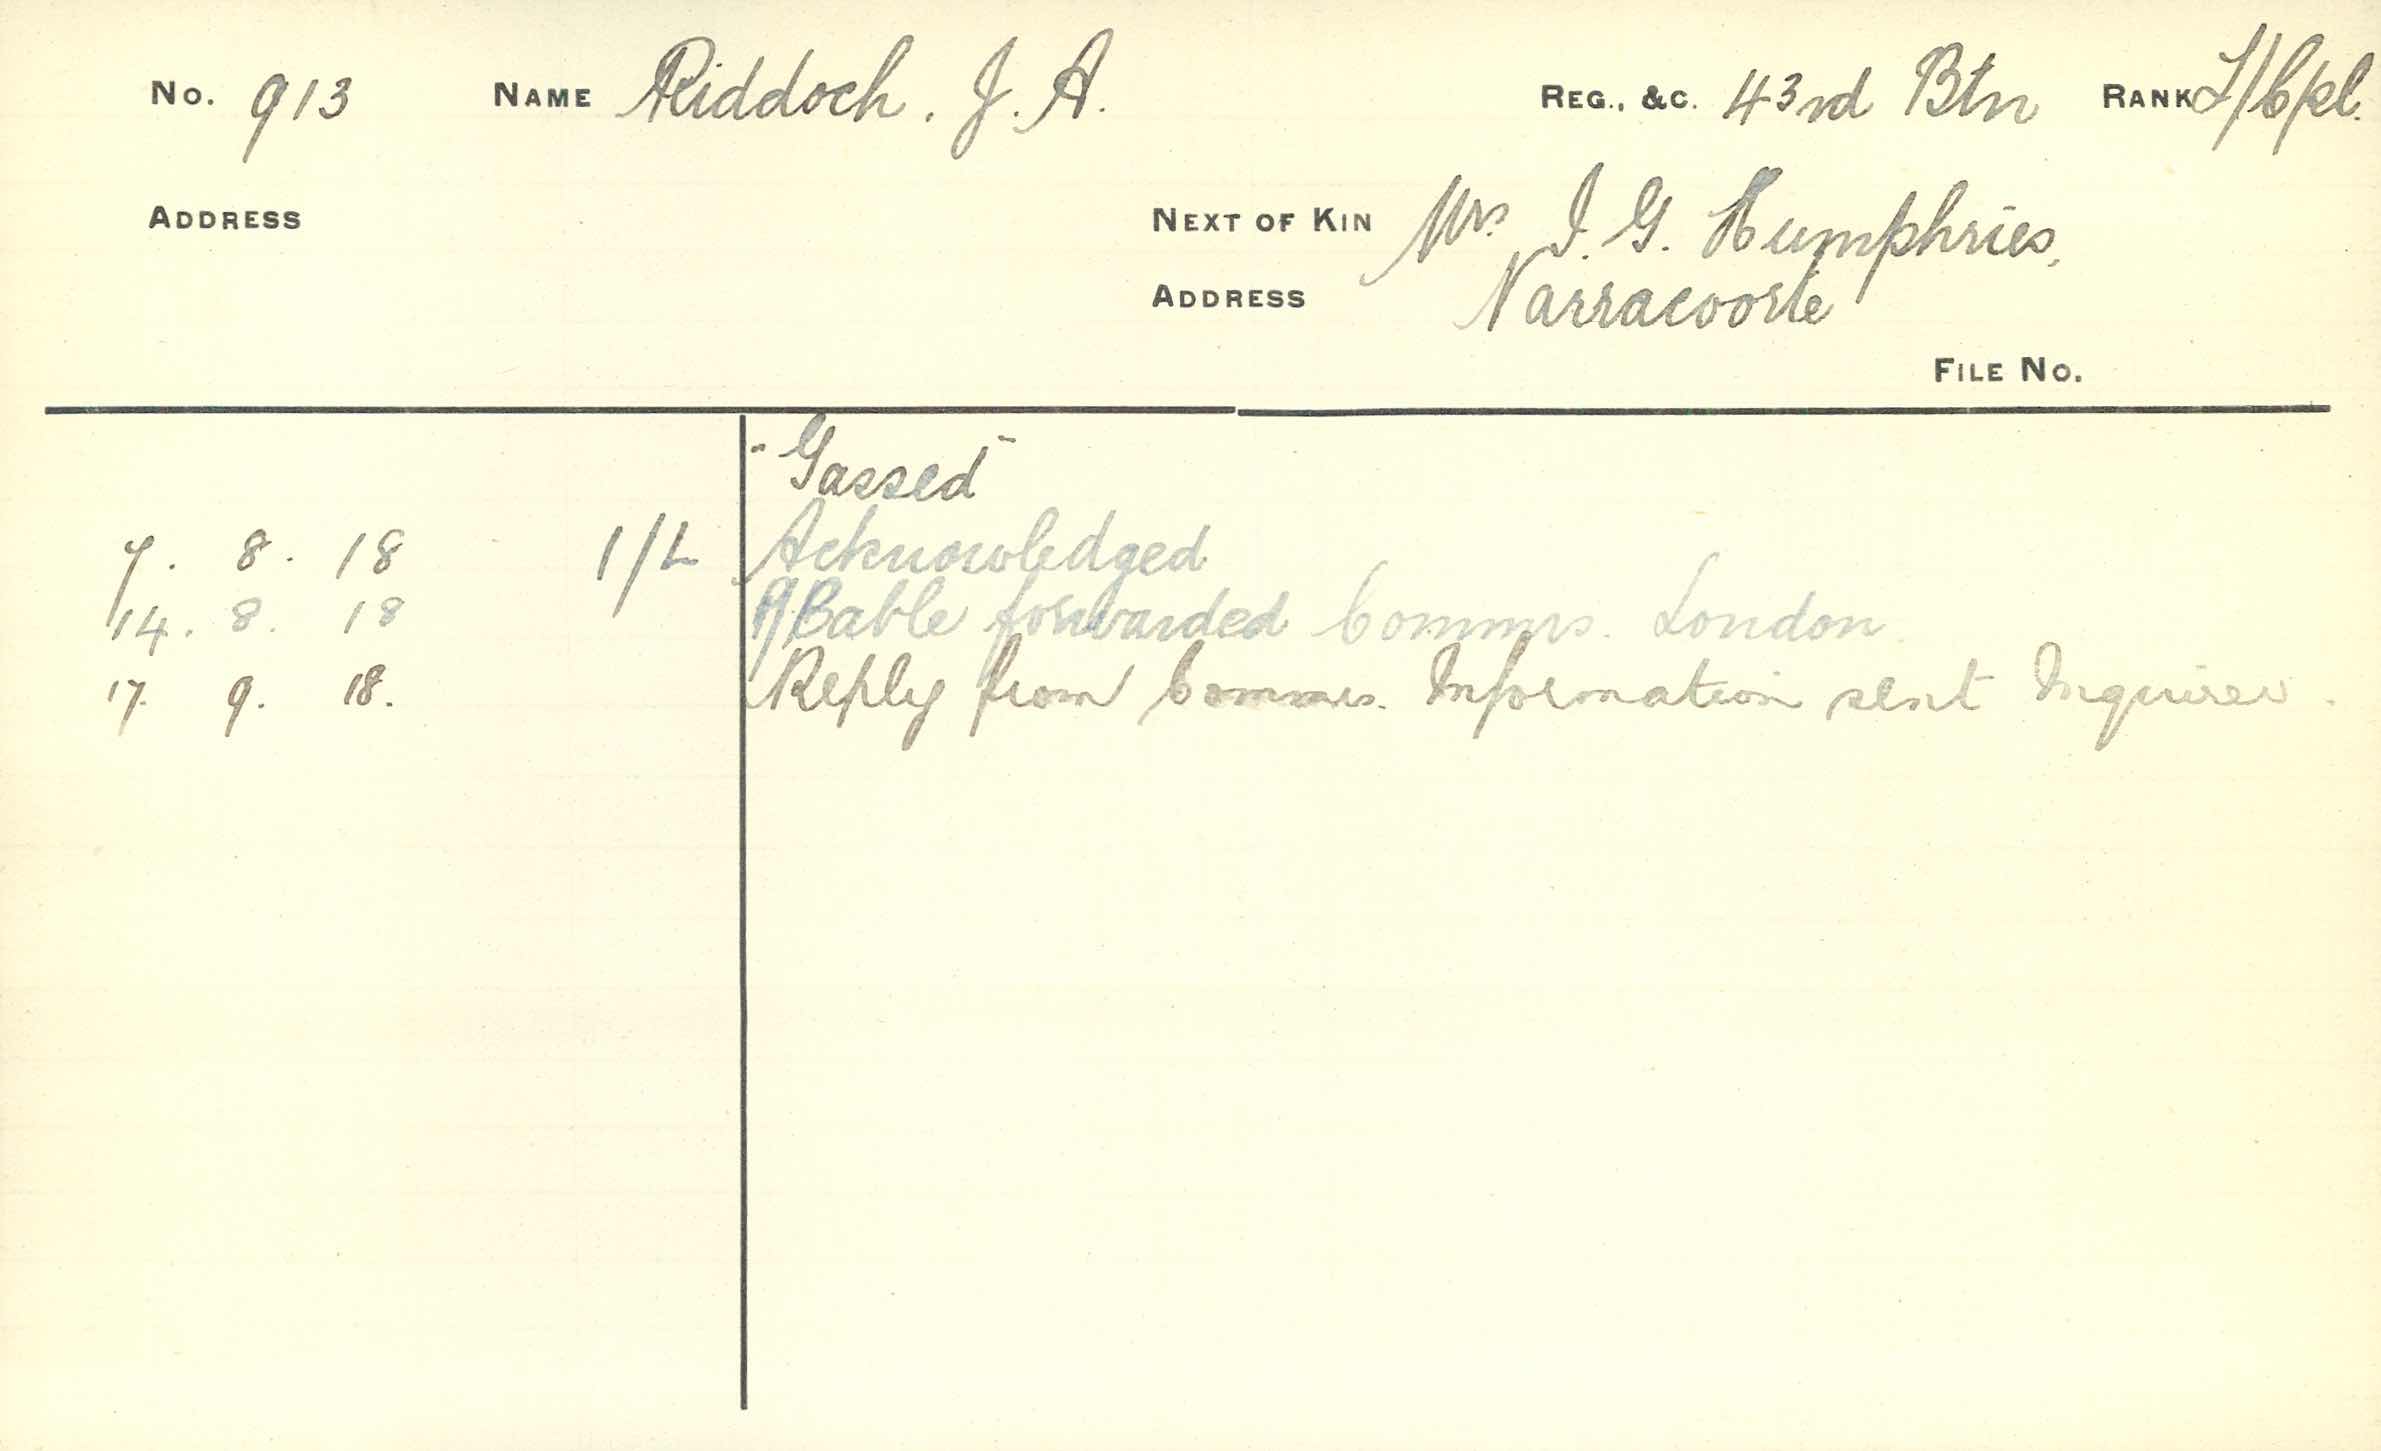 No. 913 NAME Riddoch. J. A. REG., &C. 43rd Btn RANK L/Cpl.
ADDRESS NEXT OF KIN Mrs I. G. Humphries,
ADDRESS Narracoorte
FILE No.
"Gassed"
7. 8. 18 1/L Acknowledged
14. 8. 18 Cable forwarded Commrs. London
17. 9. 18. Reply from Commrs. Information sent Inquirer.